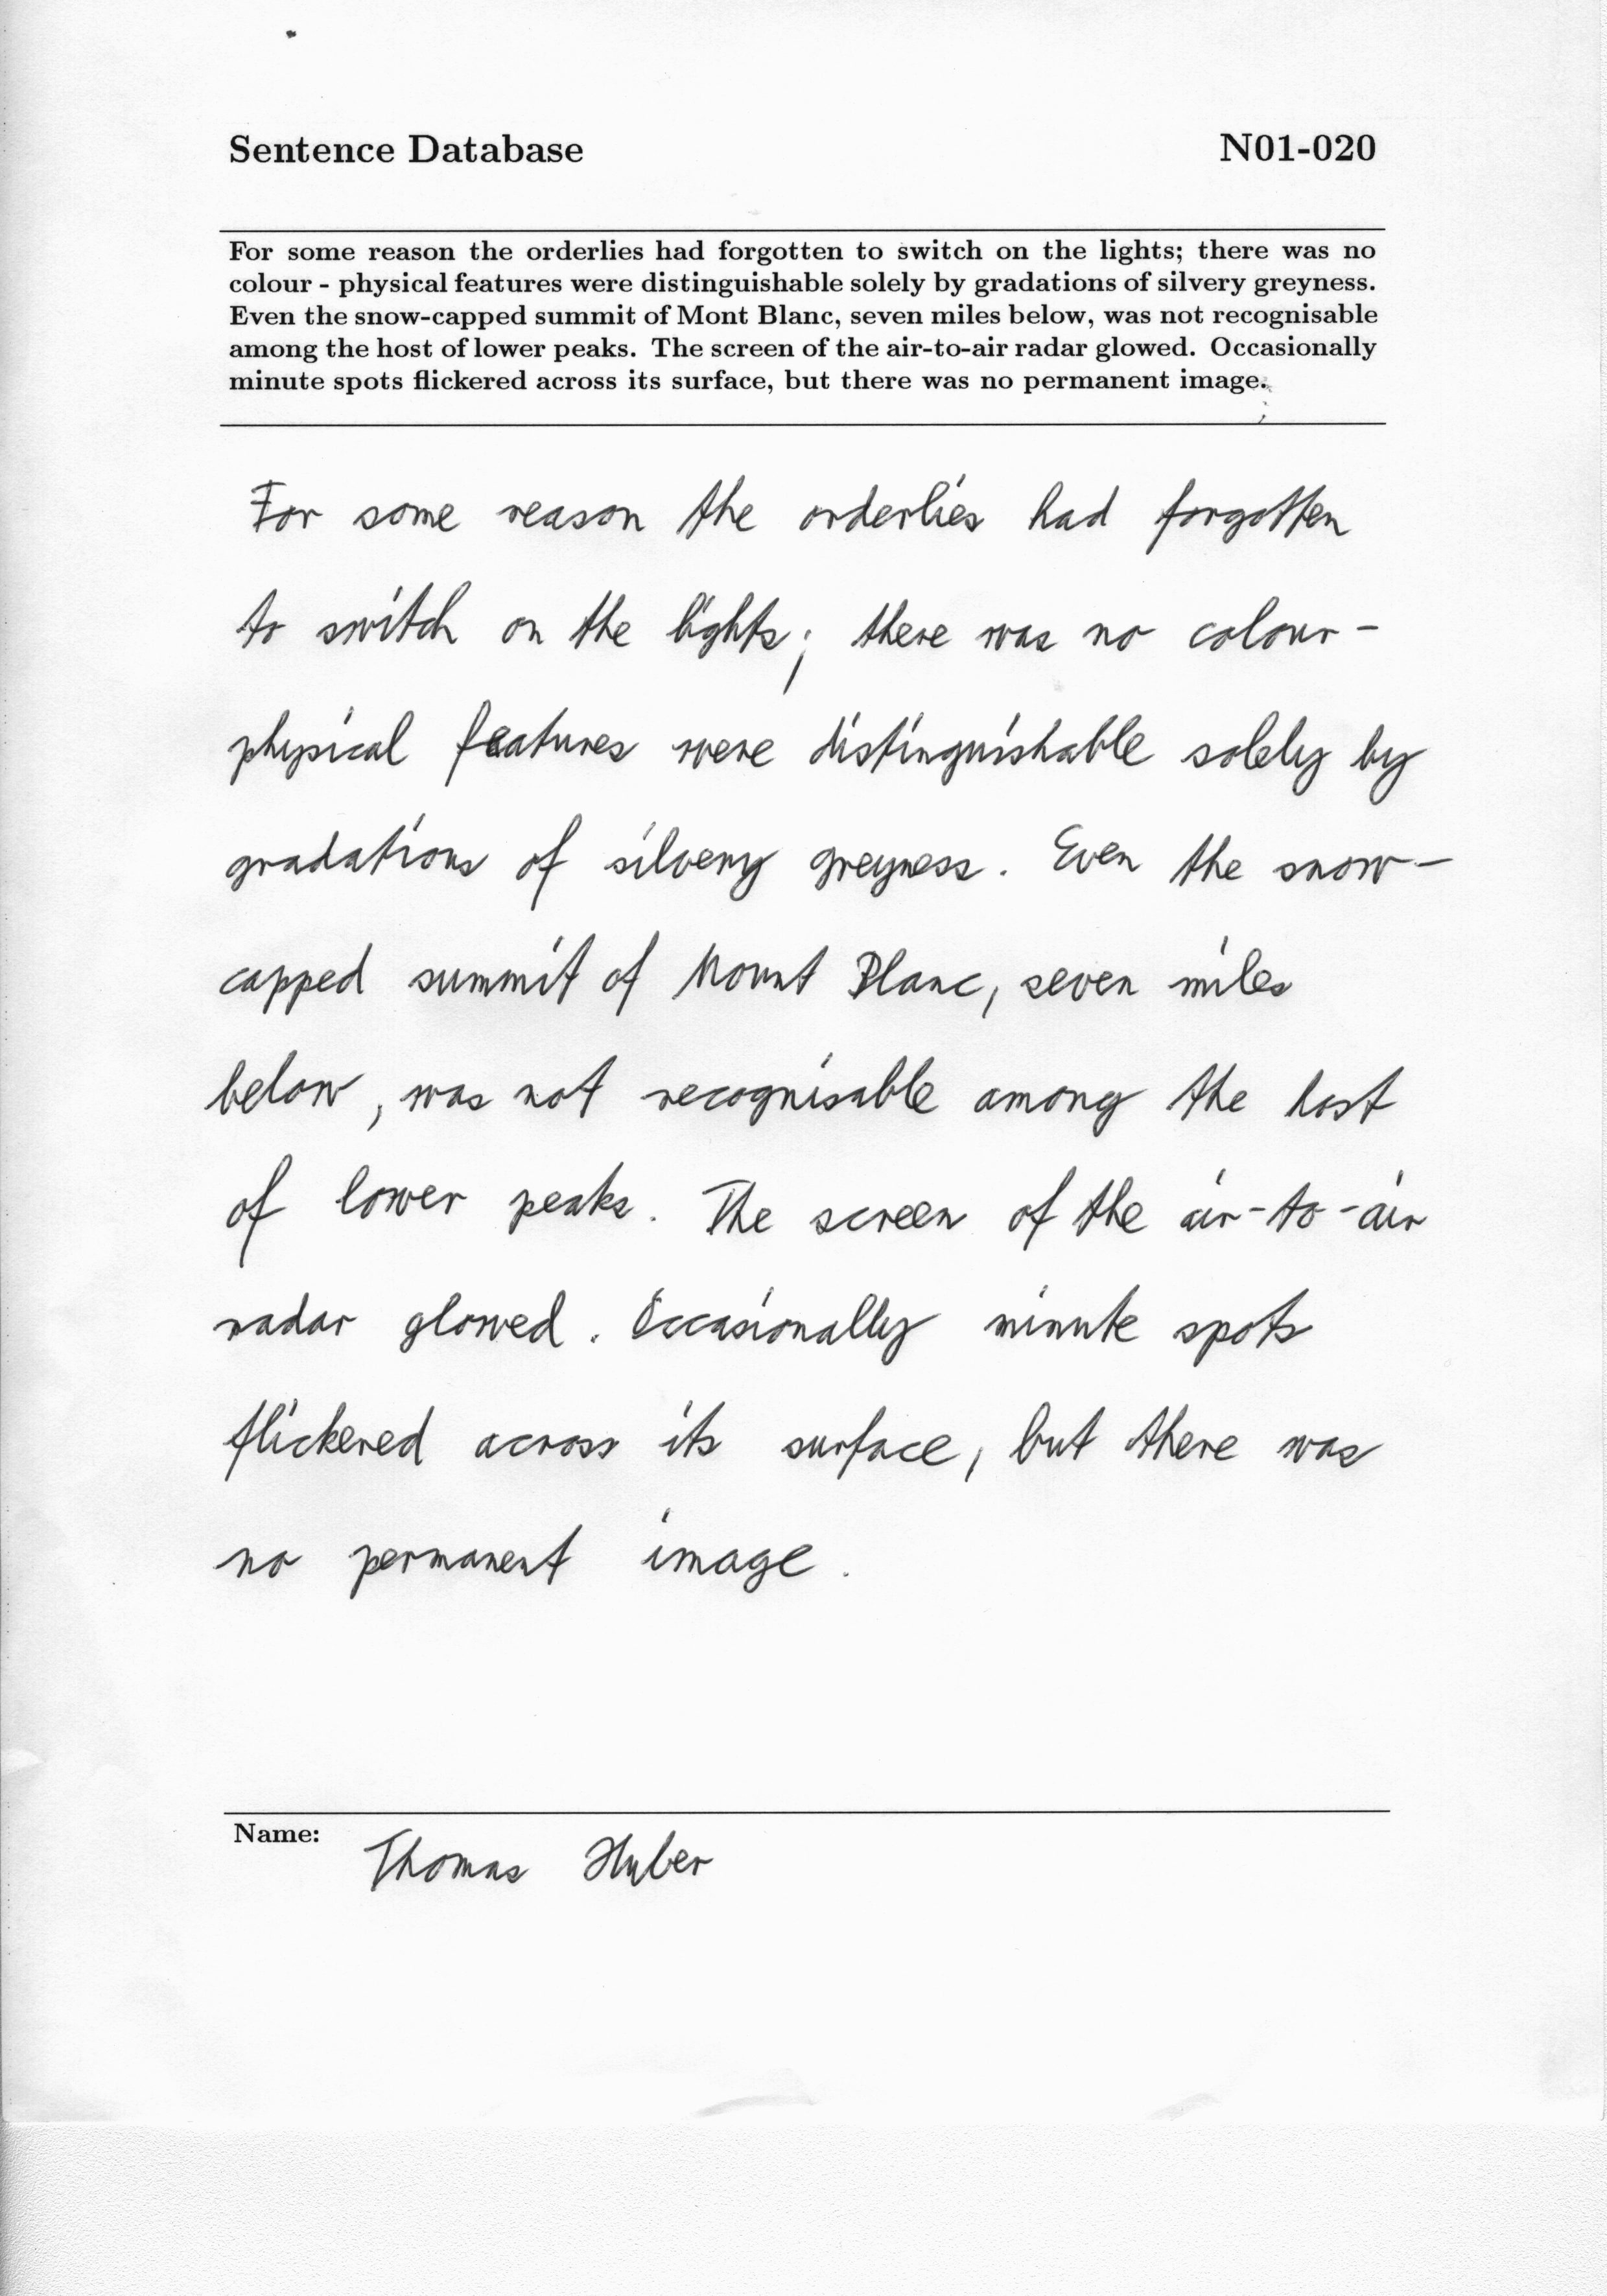 Sentence Database N01-020
For some reason the orderlies had forgotten to switch on the lights; there was no
colour - physical features were distinguishable solely by gradations of silvery greyness.
Even the snow-capped summit of Mont Blanc, seven miles below, was not recognisable
among the host of lower peaks. The screen of the air-to-air radar glowed. Occasionally
minute spots flickered across its surface, but there was no permanent image.
For some reason the orderlies had forgotten
to switch on the lights; there was no colour -
physical features were distinguishable solely by
gradations of silvery greyness. Even the snow-
capped summit of Mount Blanc, seven miles
below, was not recognisable among the host
of lower peaks. The screen of the air-to-air
radar glowed. Occasionally minute spots
flickered across its surface, but there was
no permanent image.
Name: Thomas Huber